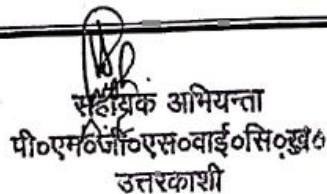 सहायक अभियन्ता
पी०एम०जी०एस०वाई०सि०ख०
उत्तरकाशी